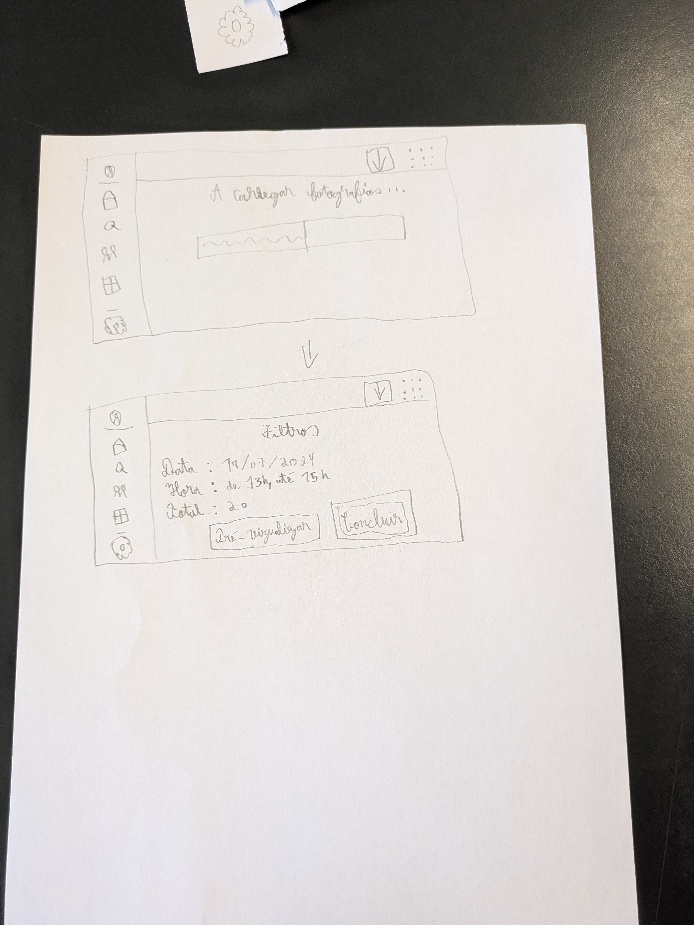 A carregar fotografias...
Filtros
Data : 19/07/2024
Hora : de 13h até 15h
Total : 20
Pré-vizualizar
Concluir